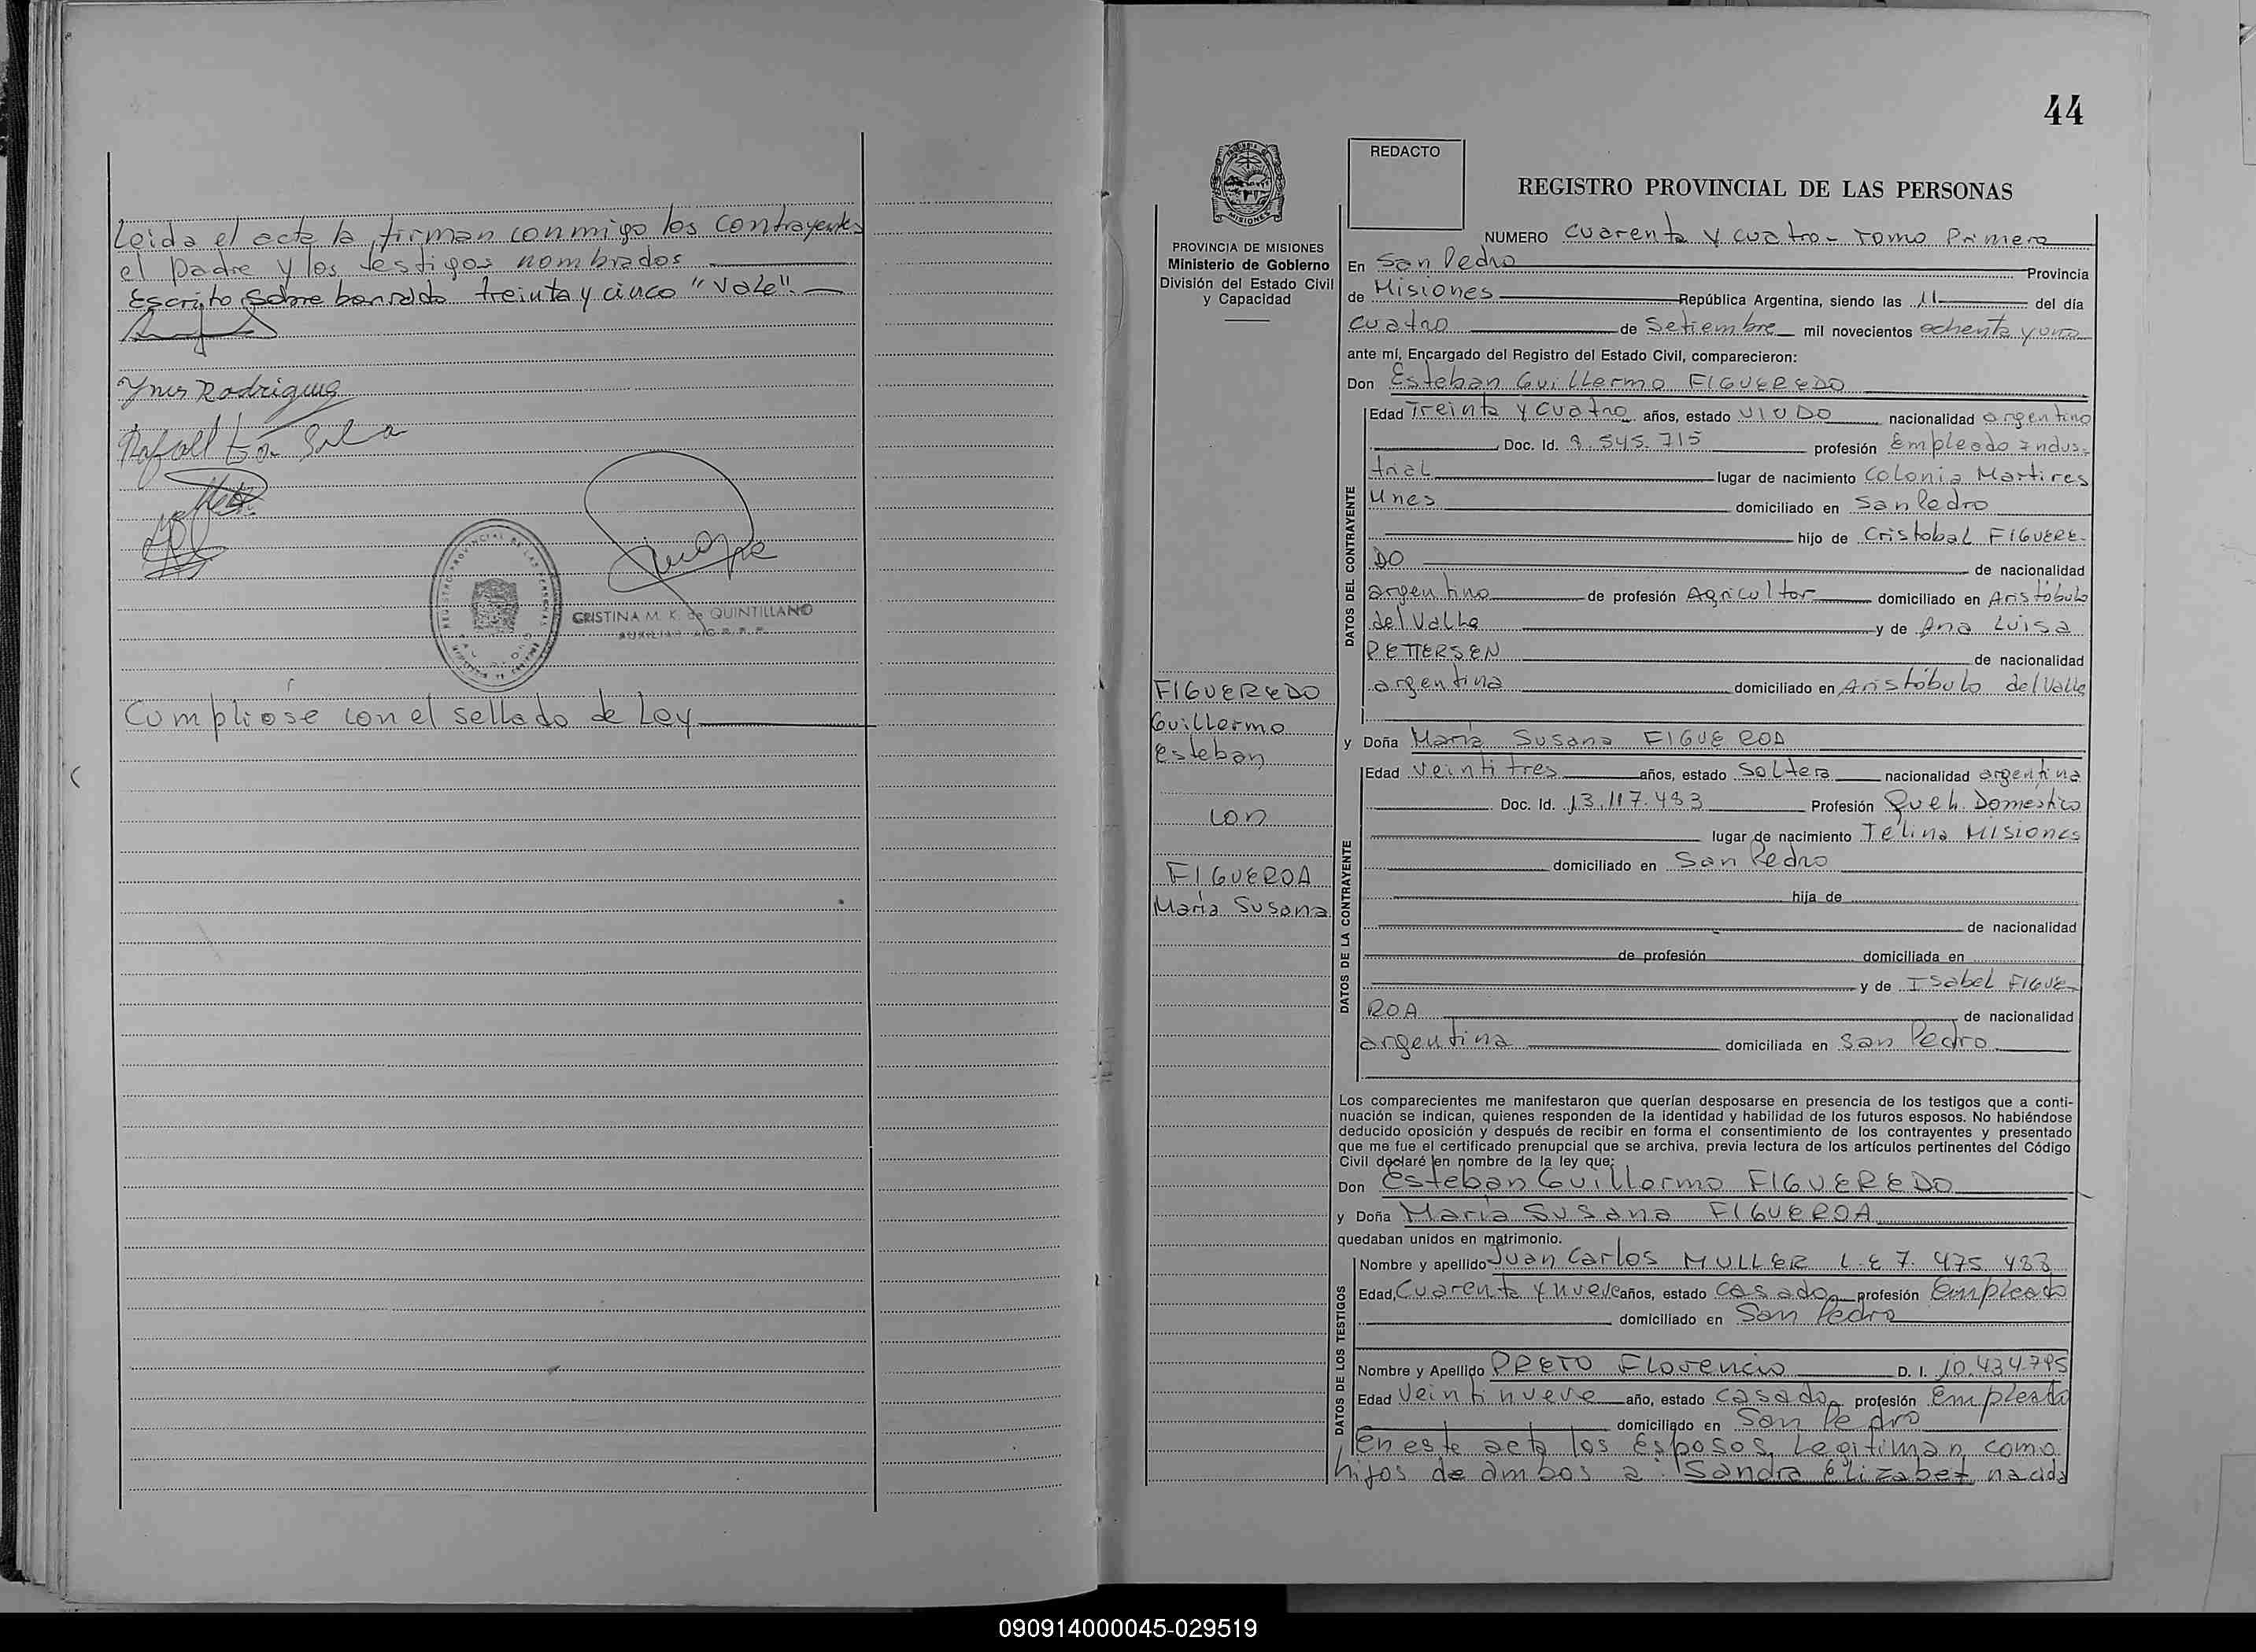 Leida el acta la firman conmigo los contrayentes
el padre y los testigos nombrados
Escrito sobre borrado treinta y cinco "Vale".
Ynes Rodrigues
Rafael
CRISTINA M. K. de QUINTILLANO
Cumpliose con el sellado de Ley
44
REDACTO
MISIONES
REGISTRO PROVINCIAL DE LAS PERSONAS
PROVINCIA DE MISIONES
Ministerio de Gobierno
División del Estado Civil
y Capacidad
NUMERO Cuarenta y cuatro - Tomo Primero
En San Pedro Provincia
de Misiones República Argentina, siendo las 11 del día
cuatro de Setiembre mil novecientos ochenta y uno
ante mí, Encargado del Registro del Estado Civil, comparecieron:
Don Esteban Guillermo FIGUEREDO
DATOS DEL CONTRAYENTE
Edad Treinta y cuatro años, estado VIUDO nacionalidad argentino
Doc. Id. 8.545.715 profesión Empleado Indus-
trial lugar de nacimiento Colonia Martires
Mnes domiciliado en San Pedro
hijo de Cristobal FIGUERE-
DO de nacionalidad
argentino de profesión Agricultor domiciliado en Aristóbulo
del Valle y de Ana Luisa
PETTERSEN de nacionalidad
argentina domiciliado en Aristóbulo del Valle
FIGUEREDO
Guillermo
Esteban
con
FIGUEROA
María Susana
y Doña María Susana FIGUEROA
DATOS DE LA CONTRAYENTE
Edad veintitres años, estado Soltera nacionalidad argentina
Doc. Id. 13.117.483 Profesión Queh. Domestico
lugar de nacimiento Misiones
domiciliado en San Pedro
hija de
de nacionalidad
de profesión domiciliada en
y de Isabel FIGUE-
ROA de nacionalidad
argentina domiciliada en San Pedro
Los comparecientes me manifestaron que querían desposarse en presencia de los testigos que a conti-
nuación se indican, quienes responden de la identidad y habilidad de los futuros esposos. No habiéndose
deducido oposición y después de recibir en forma el consentimiento de los contrayentes y presentado
que me fue el certificado prenupcial que se archiva, previa lectura de los artículos pertinentes del Código
Civil declaré en nombre de la ley que:
Don Esteban Guillermo FIGUEREDO
y Doña María Susana FIGUEROA
quedaban unidos en matrimonio.
DATOS DE LOS TESTIGOS
Nombre y apellido Juan Carlos MULLER L.E 7.475.483
Edad, Cuarenta y nueve años, estado casado profesión Empleado
domiciliado en San Pedro
Nombre y Apellido PRETO Florencio D. I. 10.434.795
Edad Veintinueve año, estado casado profesión Empleado
domiciliado en San Pedro
En este acto los Esposos Legitiman como
hijos de ambos a: Sandra Elizabet nacida
090914000045-029519